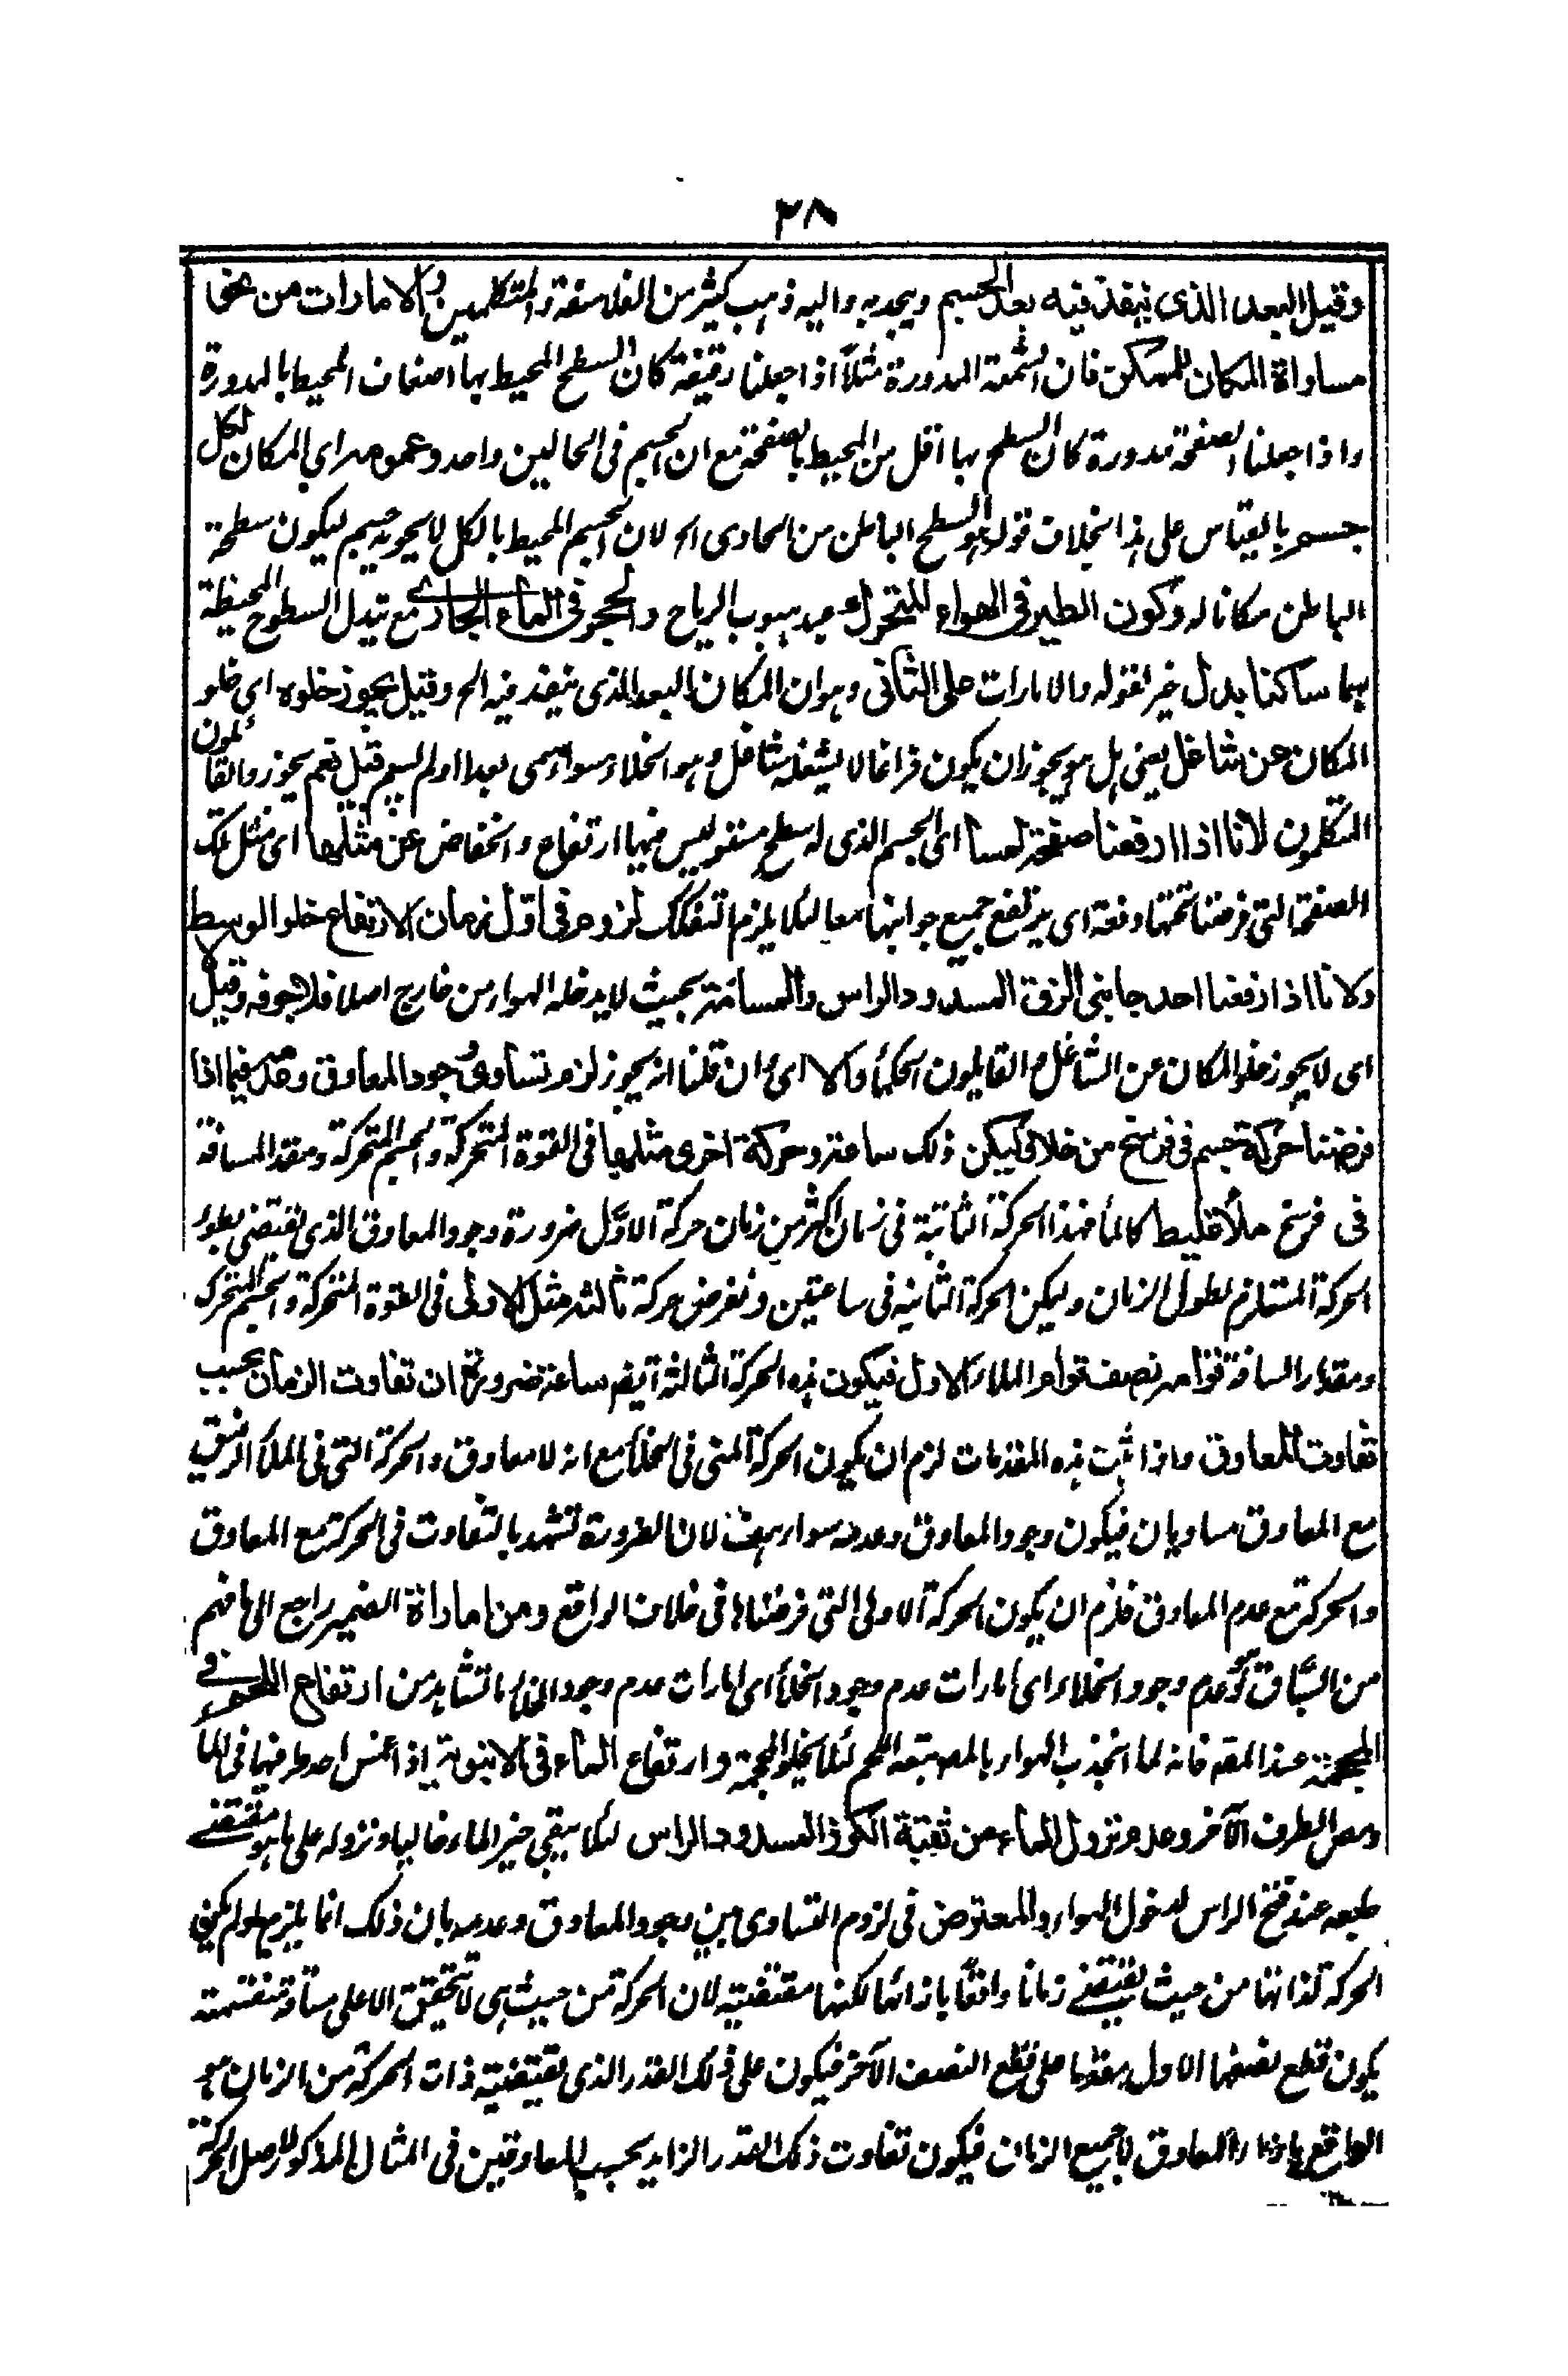 ٣٨
وقيل البعد الذى ينفذ فيه بعد الجسم ويتحد به واليه ذهب كثير من الفلاسفة والمتكلمين والامارات من نحو
مساواة المكان للمتمكن فان الشمعة المدورة مثلا اذا جعلنا رقيقة كان السطح المحيط بها اضعاف المحيط بالمدورة
واذا جعلنا الصفحة مدورة كان السطح بها اقل من المحيط بالصفحة مع ان الجسم فى الحالين واحد وعمومه اى المكان لكل
جسم بالقياس على هذا بخلاف قوله هو السطح الباطن من الحاوى الخ لان الجسم المحيط بالكل لا يحويه جسم ليكون سطحه
الباطن مكانا له وكون الطير فى الهواء المتحرك عند هبوب الرياح والحجر فى الماء الجارى مع تبدل السطوح المحيطة
بهما ساكنا يدل خبر لقوله والامارات على الثانى وهو ان المكان البعد الذى ينفذ فيه الخ وقيل يجوز خلوه اى خلو
المكان عن شاغل يعنى هل يجوز ان يكون فراغا لا يشغله شاغل وهو الخلاء سواء سمى بعدا او لم يسم قيل نعم يجوز والقائلون
المتكلمون لانا اذا رفعنا صفحة لمساء اى الجسم الذى له سطح مستو ليس فيها ارتفاع وانخفاض عن مثلها اى مثل تلك
الصفحة التى فرضنا تحتها دفعة اى يرتفع جميع جوانبها معا لئلا يلزم التفكك لزوم فى اول زمان الارتفاع خلو الوسط
ولانا اذا رفعنا احد جانبى الزق المسدود الراس والمسام بحيث لا يدخله الهواء من خارج اصلا خلا جوفه وقيل لا
اى لا يجوز خلو المكان عن الشاغل والقايلون الحكماء والا اى ان قلنا انه يجوز لزم تساوى وجود المعاوق وعدمه فيما اذا
فرضنا حركة جسم فى فرسخ من خلاء وليكن ذلك ساعة وحركة اخرى مثلها فى القوة المتحركة والجسم المتحركة ومقدار المسافة
فى فرسخ ملأ غليظ كالماء فهذا الحركة الثانية فى زمان اكثر من زمان حركة الاول ضرورة وجود المعاوق الذى يقتضى بطوء
الحركة المستلزم لطول الزمان وليكن الحركة الثانية فى ساعتين ونفرض حركة ثالثة مثل الاولى فى القوة المتحركة والجسم المتحرك
ومقدار المسافة قوامه نصف قوام الملاء الاول فيكون هذه الحركة الثالثة ايضا ساعة ضرورة ان تفاوت الزمان بحسب
تفاوت المعاوق واذا ثبت هذه المقدمات لزم ان يكون الحركة التى فى الخلاء مع انه لا معاوق والحركة التى فى الملاء الرقيق
مع المعاوق مساويان فيكون وجود المعاوق وعدمه سواء هف لان الضرورة تشهد بالتفاوت فى الحركة مع المعاوق
والحركة مع عدم المعاوق فلزم ان يكون الحركة الاولى التى فرضناها فى خلاف الواقع ومن امارات الضمير راجع الى ما فهم
من السباق وعدم وجود الخلاء اى امارات عدم وجود الخلاء اى امارات عدم وجود الخلاء ما تشاهد من ارتفاع اللحم فى
المحجمة عند المص فانه لما انجذب الهواء بالمص تبعه اللحم لئلا يخلو المحجمة وارتفاع الماء فى الانبوبة اذا غمس احد طرفيها فى الماء
ومص الطرف الآخر وعدم نزول الماء من ثقبة الكوز المسدود الراس لئلا يبقى حيز الماء خاليا ونزوله على ما هو مقتضى
طبعه عند فتح الراس لدخول الهواء والمعترض فى لزوم التساوى بين وجود المعاوق وعدمه بان ذلك انما يلزم لو لم يكن
الحركة لذاتها من حيث تقتضى زمانا واقعا بازائها لكنها مقتضية لان الحركة من حيث هى لا تتحقق الا على مسافة منقسمة
يكون قطع نصفها الاول مقدما على قطع النصف الآخر فيكون على ذلك القدر الذى يقتضية ذات الحركة من الزمان هو
الواقع بازاء المعاوق لا جميع الزمان فيكون تفاوت ذلك القدر الزايد بحسب المعاوقين فى المثال المذكور لاصل الحركة